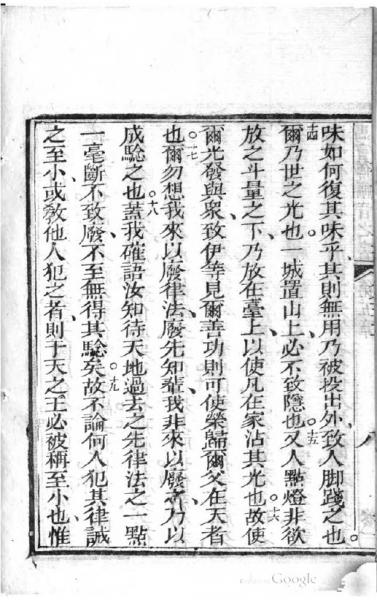 味如何復其味乎其則無用乃被投出外致人脚踐之也。
十四爾乃世之光也一城置山上必不致隱也。十五又人點燈非欲
放之斗量之下乃放在臺上以使凡在家沾其光也。十六故使
爾光發與衆致伊等見爾善功則可使榮歸爾父在天者
也。十七爾勿想我來以廢律法廢先知輩我非來以廢之乃以
成驗之也。十八蓋我確語汝知待天地過去之先律法之一點
一毫斷不致廢不至無得其驗矣。十九故不論何人犯其律誡
之至小或敎他人犯之者則于天之王必被稱至小也惟
Google